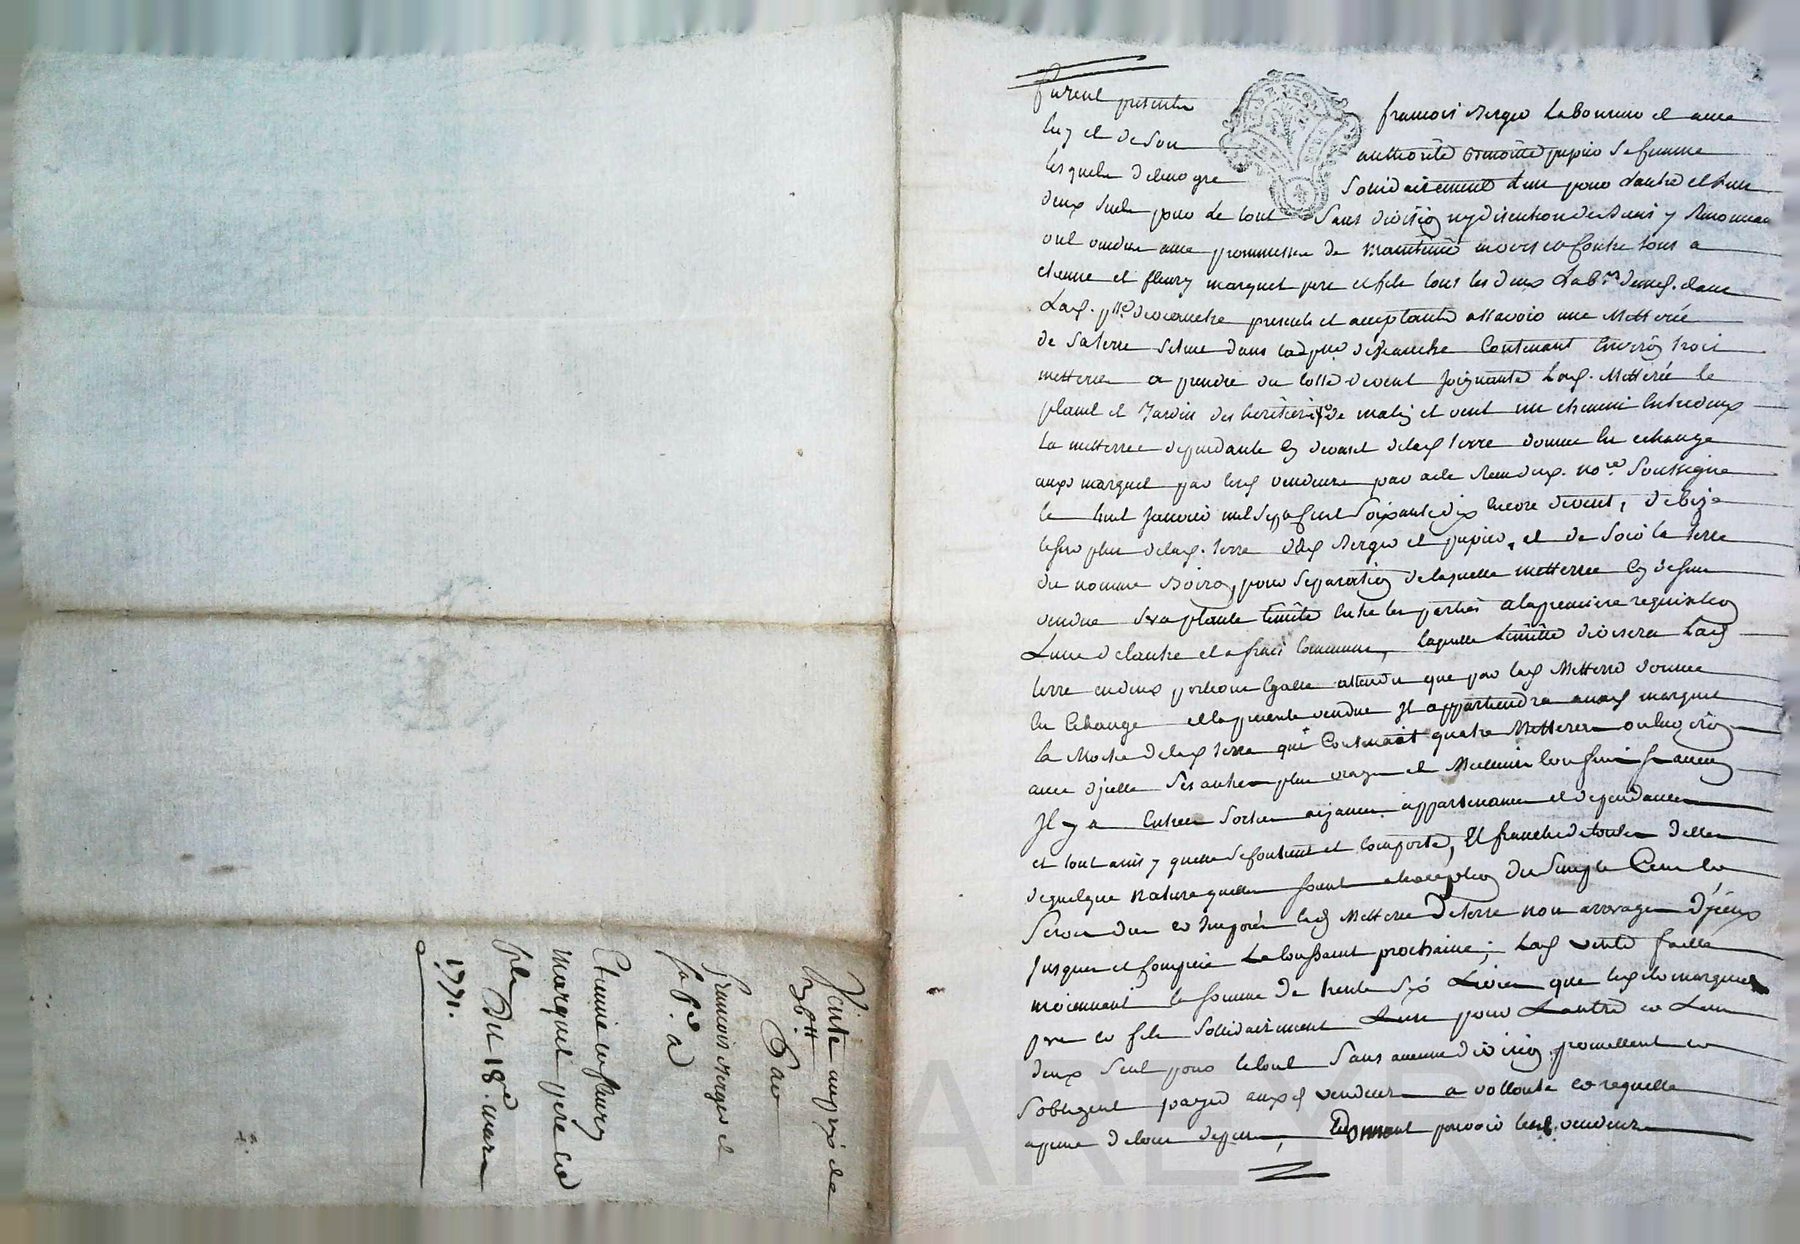 furent presents françois Verger Laboureur et avec
luy et de son authorité Benoitte papier sa femme
lesquels de leur gre solidairement l'un pour l'autre et l'un
deux seuls pour le tout sans division ny discution de biens y renoncant
ont vendu avec promesse de maintenir envers et contre tous a
etienne et fleury marquet pere et fils tous les deux Lab.rs dans
Lad. presents et acceptants assavoir une Metterée
de sa terre scituee dans lad contenant environ trois
metterées a prendre du cotté devent joignante lad. Metterée le
plant et Jardin des heritiers de matin et vent un chemin entredeux
La metterée dependante cy devant de lad terre donnée en echange
aux marquet par les vendeurs par acte receu no.re soussigné
le huit Janvier mil sept cent soixante dix encore devent, de bize
le surplus de lad. terre desd Verger et papier, et de soir la terre
du nommé pour separation de laquelle metterée cy dessus
vendue sera planté limitte entre les parties a la premiere requisition
Lune de lautre et a frais communs, laquelle limitte divisera lad
terre en deux portions egalles attendu que par lad Metterée donnée
en Echange et la presente vendue Il appartiendra auxd marquet
la Moitié de lad terre qui contenait quatre Metterées ou environ
avec d'jcelle ses autres plus vrays et Meilleurs confins sil
Il y a Entrées sorties aizances appartenances et dependances
et tout ainsi y quelle se contient et comporte, Et franche de toutes dettes
de quelque nature quelles soient a l'exception du simple Cens
Servis du et Imposés lad Metterée de terre non arrerages d'jceux
Jusques et compris La toussaint prochaine; Lad vente faitte
moiennant la somme de trente six Livres que lesdits marquet
pere et fils solidairement Lun pour Lautre et Lun
deux seul pour le tout sans aucune division promettent et
sobligent payer auxd vendeurs a vollonté et requette
a peine de tous depens, donnant pouvoir lesd. vendeurs
Vente au prix de
36.tt Par
francois Verger et
sa f.e a
Etienne et fleury
marquet pere et
fils Du 18.e mars
1771.
LAREYRON